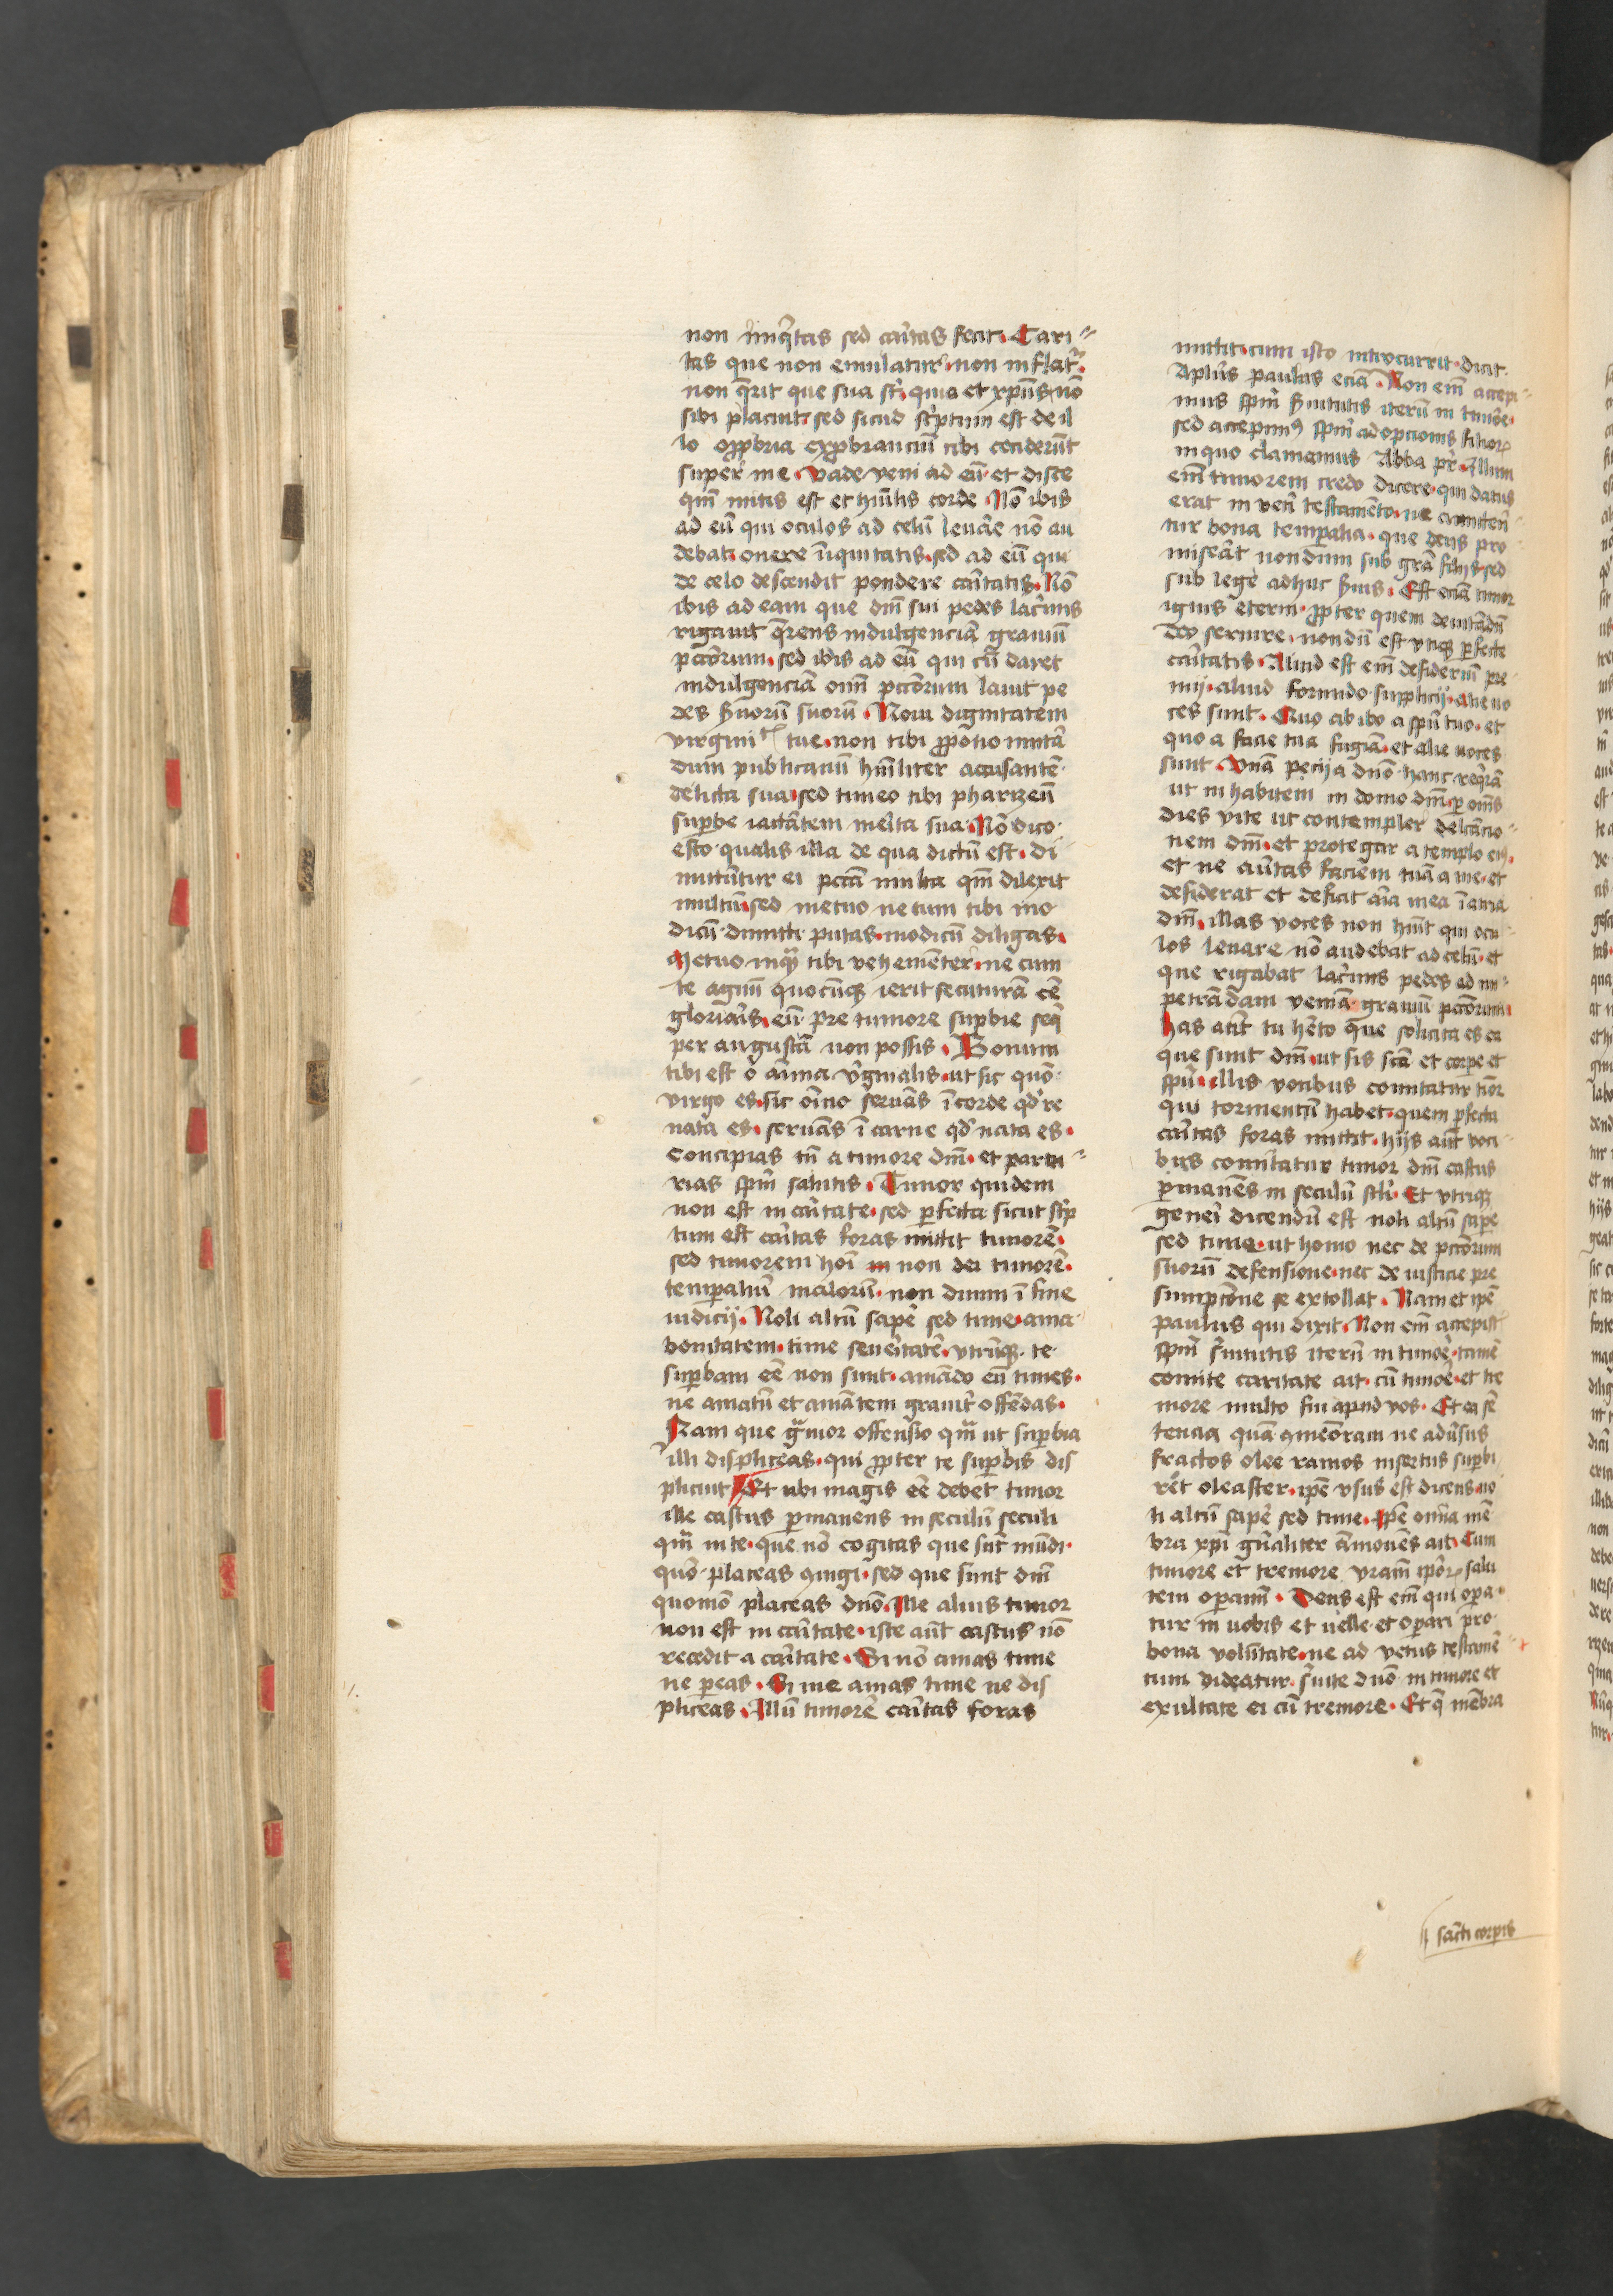 non iniq̃tas sed car̃itas fecit. Cari〃
tas que non emulatur. non inflat᷑.
non q̃rit que sua st̃. quia et xp̃us nõ
sibi placuit. sed sicud sc̃ptum est de il
lo opp̃bria exp̃branciũ tibi ceciderũt
super me. Vade veni ad eũ. et disce
qm̃ mitis est et hũilis corde. Nõ ibis
ad eũ qui oculos ad celũ leuar̃e nõ au
debat. onere ĩiquitatis. sed ad eũ qui
de celo descendit pondere car̃itatis. Nõ
ibis ad eam que dñi sui pedes lac̃imis
rigauit q̃rens indulgenciã grauiũ
pccõrum. sed ibis ad eũ qui cũ daret
indulgenciã om̃i pccõrum lauit pe
des s̃uorũ suorũ. Noui dignitatem
virginitatis tue. non tibi p̃pono imitã
dum publicanũ hũiliter accusantẽ
delicta sua. sed timeo tibi pharizeũ
sup̃be iactãtem mer̃ita sua. Nõ dico.
esto qualis illa de qua dictũ est. di
mittũtur ei pccãta multa qm̃ dilexit
multũ. sed metuo ne cum tibi mo
dicũ dimitti putas. modicũ diligas.
Metuo inquã tibi vehemẽter. ne cum
te agnũ quocũqȝ ierit secuturã eẽ
glorieris. eũ pre tumore sup̃bie seq̃
per angustã non possis. Bonum
tibi est o anima v̾ginalis. ut sic quõ
virgo es. sic oĩno seruãs ĩ corde qd̾ re
nata es. seruãs ĩ carne qd̾ nata es.
Concipias tñ a timore dñi. et partu〃
rias spm̃ salutis. Timor quidem
non est in car̃itate. sed p̃fecta sicut sc̃p
tum est car̃itas foras mittit timorẽ.
sed timorem hoĩ in non dei timorẽ.
temp̃aliũ malorũ. non diuini ĩ fine
iudicij. Noli altũ sapẽ sed time. ama
bonitatem. time seuer̃itatẽ. vtrũqȝ te
sup̃bam eẽ non sinit. amãdo eñ times.
ne amatũ et amãtem grauit̾ offẽdas.
Nam que g̃uior offensio qm̃ ut sup̃bia
illi displiceas. qui p̃pter te sup̃bis dis
plicuit Et ubi magis eẽ debet timor
ille castus p̃manens in seculũ seculi
qm̃ in te. que nõ cogitas que sũt mũdi.
quõ placeas 9iugi. sed que sunt dñi
quomõ placeas dño. Ille alius timor
non est in car̃itate. iste aũt castus nõ
recedit a car̃itate. Si nõ amas time
ne p̃eas. Si me amas time ne dis
pliceas. Illũ timorẽ car̃itas foras
mittit. cum isto intro currit. dicit
Aplũs paulus eciã. Non em̃ accepi〃
mus spm̃ s̃uitutis iterũ in timõe.
sed accepim9 spm̃ adopcionis filior᷑
in quo clamamus Abba pr̃. Illum
em̃ timorem credo dicere. qui datus
erat in vet̾i testamẽto. ne amitterẽ
tur bona temp̃alia. que deus pro
miserat nondum sub grã filijs. sed
sub lege adhuc s̃uis. Est eciã timor
ignis eterni. p̃pter quem deuitãdũ
deo seruire. nondũ est vtiqȝ p̃fecte
car̃itatis. Aliud est em̃ desideriũ pre
mij. aliud formido supplicij. Alie uo
ces sunt. Quo abibo a spũ tuo. et
quo a facie tua fugiã. et alie uoces
sunt. Vnã pecij a dño hanc req̃rã
ut inhabitem in domo dñi. p̃ om̃s
dies vite ut contempler delcãcio〃
nem dñi. et protegar a templo ei9.
et ne au̾tas faciẽm tuã a me. et
desiderat et deficit aĩa mea ĩ atria
dñi. illas voces non hñt qui ocu
los leuare nõ audebat ad celũ. et
que rigabat lac̾imis pedes ad im〃
petrãdam veniã grauiũ pccõrum.
has aũt tu hẽto que solicita es ea
que sunt dñi. ut sis sc̃a et corp̃e et
spũ. illis vocibus comitatur timor
qui tormentũ habet. quem p̃fecta
car̃itas foras mittit. hijs aũt voci
bus comitatur timor dñi castus
p̃manẽs in seculũ scli. Et vtriqȝ
genei dicendũ est noli altũ sapẽ
sed time. ut homo nec de pccõrum
suorũ defensione. nec de iusticie pre
sumpcõne se extollat. Nam et ip̃e
paulus qui dixit. Non em̃ accepist
spm̃ s̾uitutis iterũ in timõe. tamẽ
comite caritate ait. cũ timõe. et tre
more multo fui apud vos. Et ea sẽ
tencia quã 9mẽoram ne adũsus
fractos olee ramos insertus sup̃bi
ret oleaster. ip̃e vsus est dicens. no
li altũ sapẽ sed time. Ip̃e omĩa mẽ
bra xp̃i gñaliter ãmonẽs ait. Cum
timore et tremore vram̃ ip̃or᷑ salu
tem op̃amĩ. Deus est em̃ qui op̃a
tur in uobis et uelle et op̃ari pro
bona volũtate. ne ad vetus testamẽ
tum videatur. s̾uite dño in timore et
exultate ei cũ tremore. Et q̃ mẽbra
sãcti corp̃is